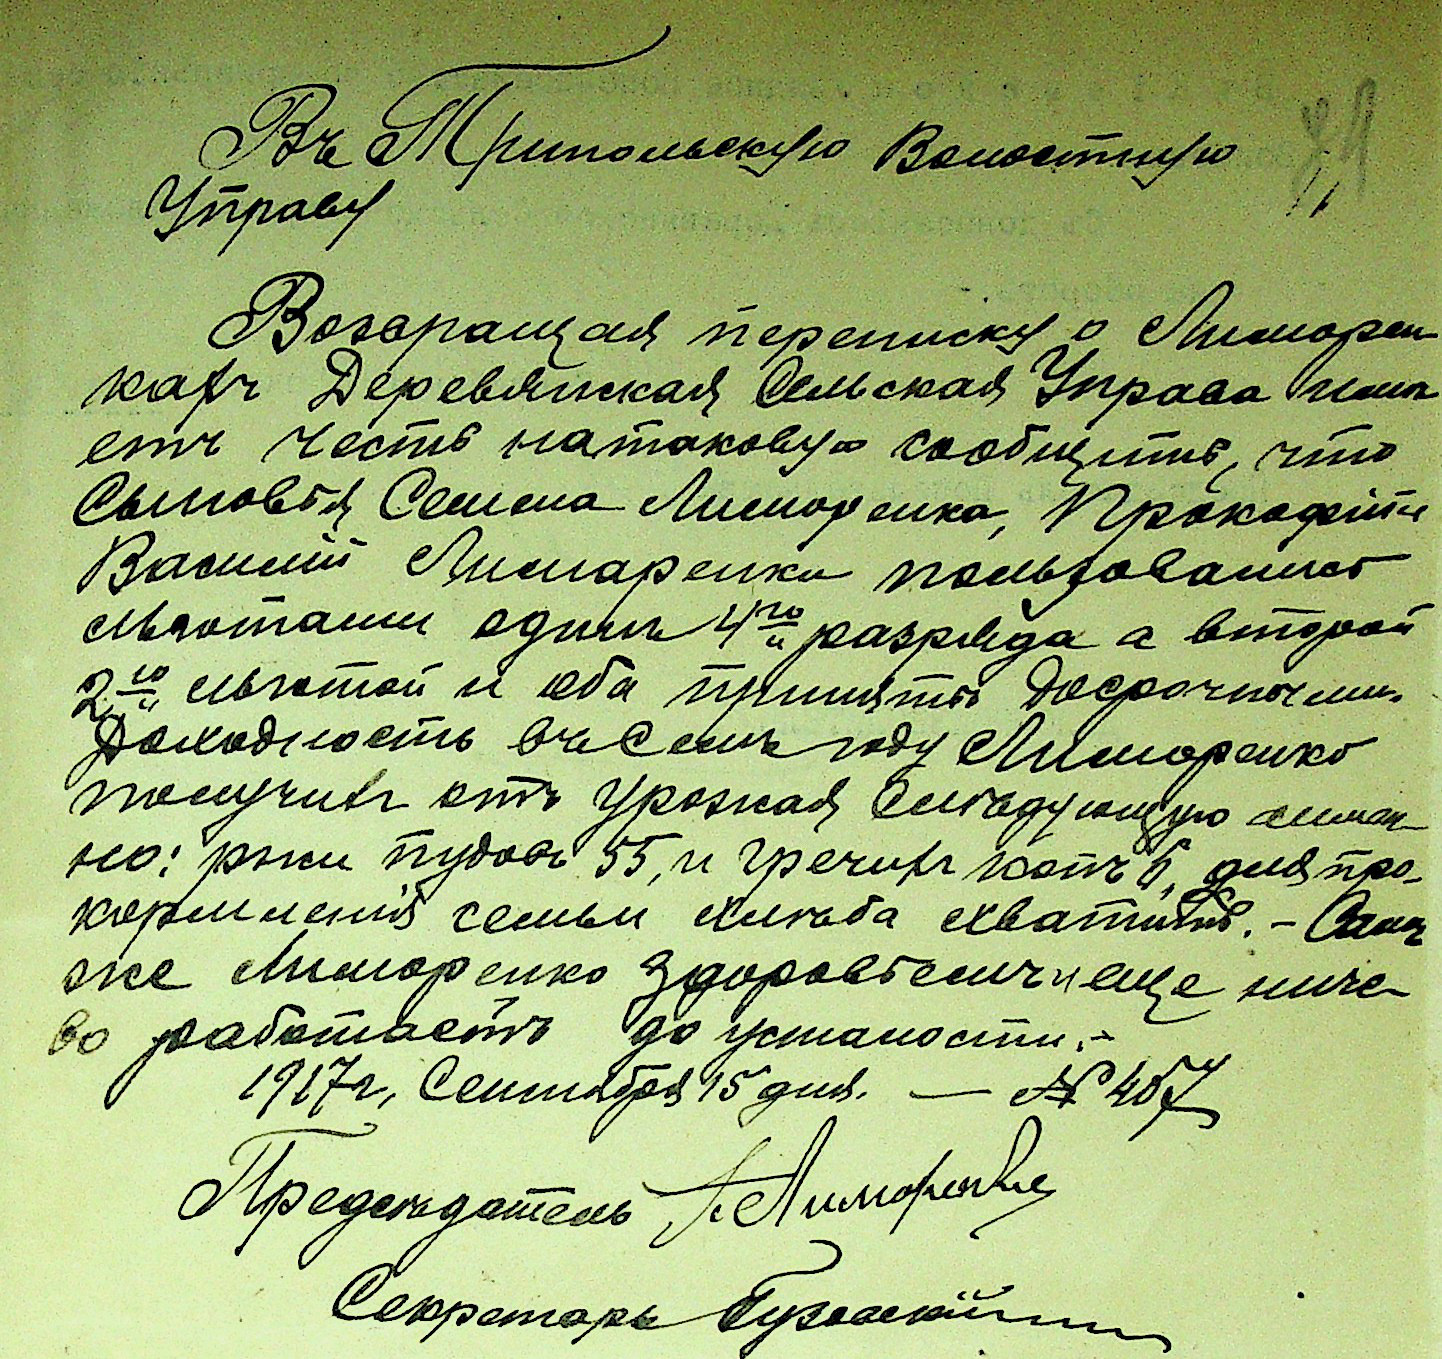 Въ Трипольскую Волостную
Управу
Возвращая переписку о Лиморен-
кахъ Деревянская Сельская Управа имѣ-
етъ честь на таковую сообщить, что
Сыновья Семена Лиморенка, Прокофій и
Василій Лимаренки пользовались
льготами одинъ 4го разряда а второй
2го льготой и оба приняты досрочными.
Доходность въ Семъ году Лиморенко
получилъ отъ урожая Слѣдующую имен-
но: ржи пудовъ 55, и гречихи копъ 6, для про-
кормленія семьи хлѣба хватитъ. - Самъ
же Лиморенко здоровьемъ еще ниче-
во работаетъ до усталости. -
1917 г, Сентября 15 дня. — № 457
Предсѣдатель Лиморенко
Секретарь